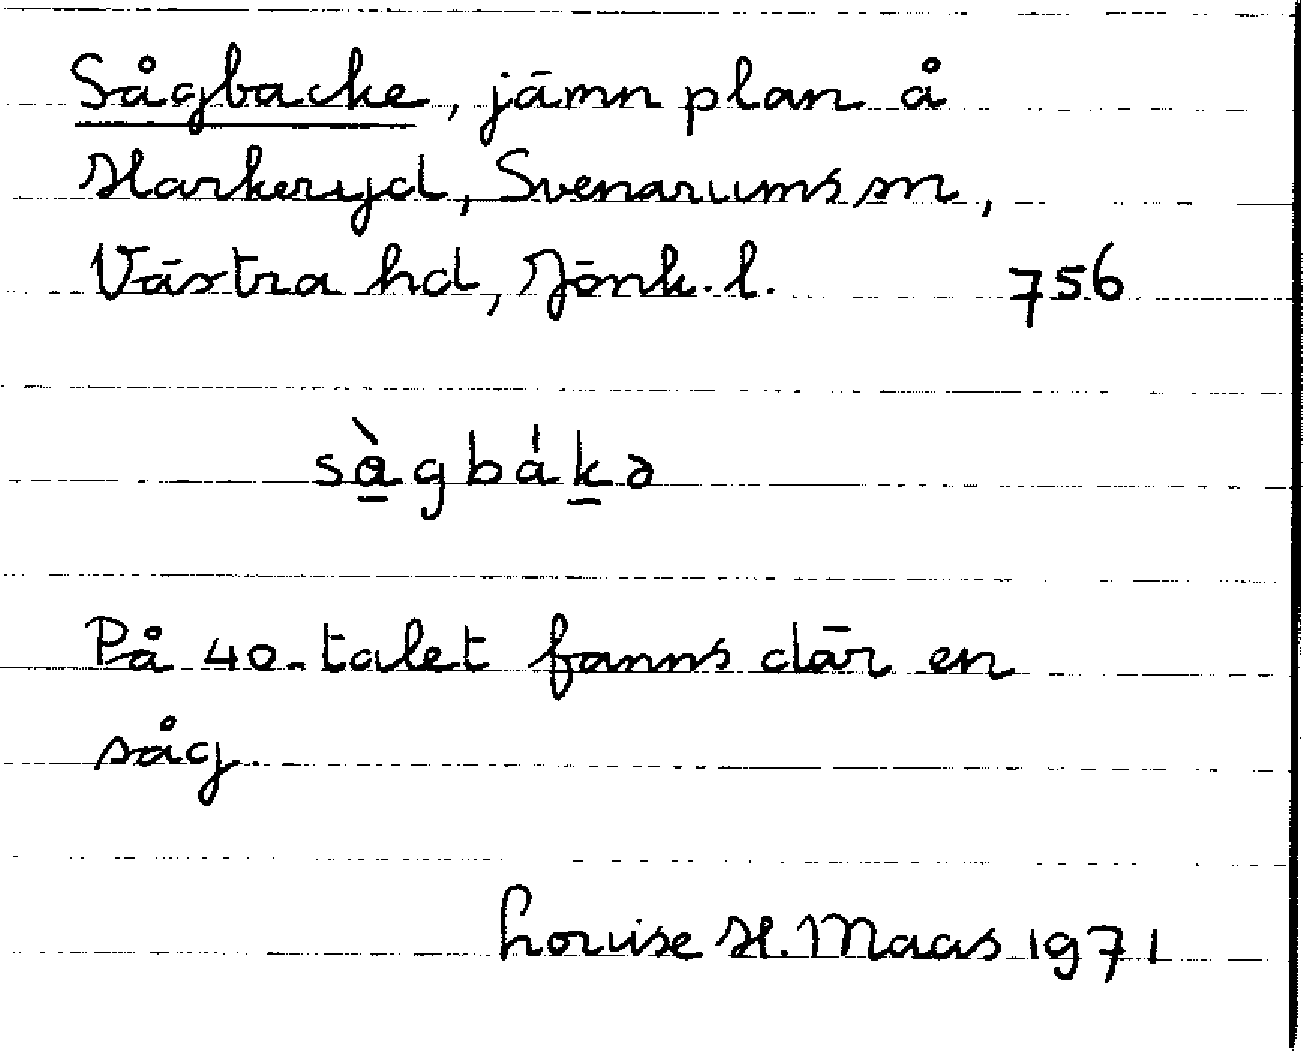 Sågbacke, jämn plan å
Harkeryd, Svenarums sn,
Västra hd, Jönk. l. 756
sàgbákə
På 40-talet fanns där en
såg.
Louise H. Maas 1971